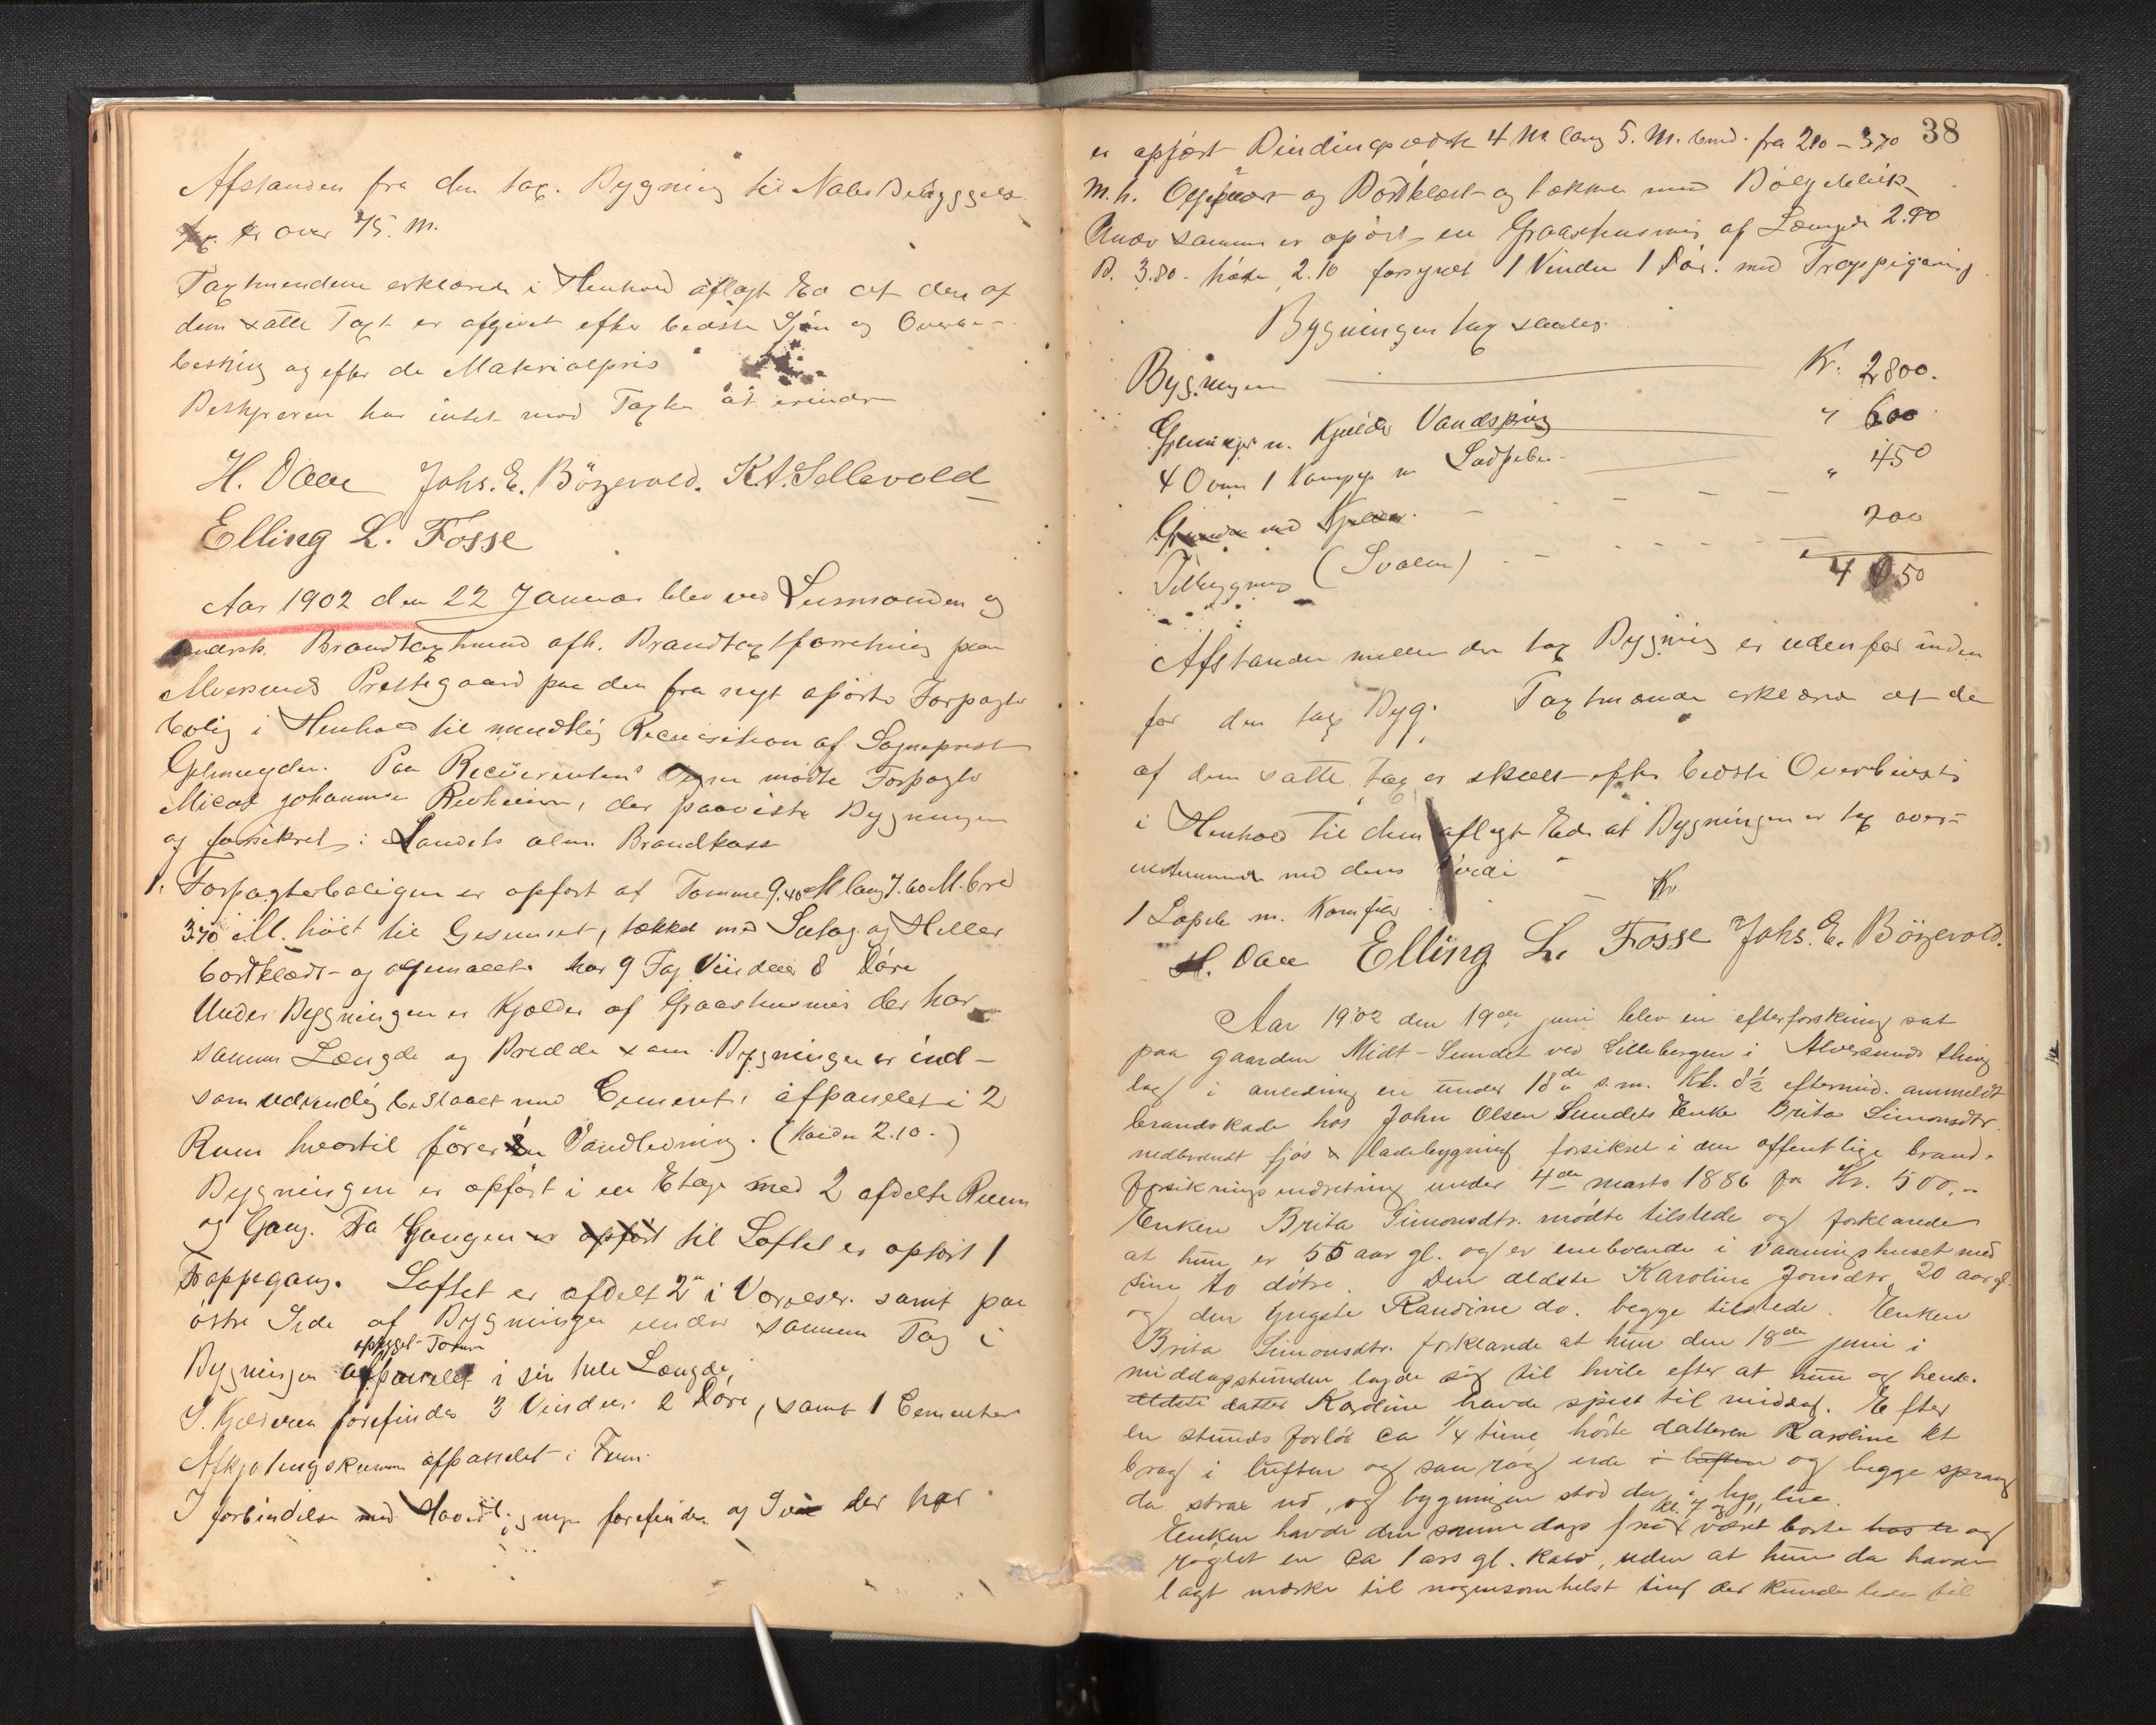 Afstanden fra den tax. Bygning til Nabobebyggels
er over 75. M.
Taxtmendene erklærede i Henhold aflagt Ed at den af
dem satte Taxt er afgivet efter bedste Sjön og Overbe-
besning og efter de Materialpris
Bestyreren har intet mod Taxten at erindre
H. Daae Johs. E. Börgevold. K A. Sellevold
Elling L. Fosse
Aar 1902 den 22 Januar blev ved Lensmanden og
Brandtaxtmænd afh. Brandtaxtforretning paa
Alversunds Prestegaard paa den fra nyt opförte Forpagter
bolig i Henhold til mundtlig Recvisition af Sogneprest
Gelmuyden. Paa Recvirentens Vegne mödte Forpagter
Johannesen der paaviste Bygningen
og forsikret i Landets alm. Brandkasse
1. Forpagterboligen er opfört af Tömmer 9.40 M lang 7.60 M. bred
3.70 M. höit til Gesimset, tækket med Sutag og Heller
bordklædt og har 9 Fag Vinduer 8 Döre
Under Bygningen er Kjælder af Graastensmur der har
samme Længde og Bredde som Bygningen er ind-
som udvendig beslaaet med Cement, afpanelet i 2
Rum hvortil förer Vandledning. (Höide 2.10.)
Bygningen er opfört i en Etage med 2 afdelte Rum
og Gang. Fra Gangen er opfört til Loftet er opfört 1
Trappegang. Loftet er afdelt 2 i Værelser samt paa
östre Side af Bygningen under samme Tag i
Bygningen afpanelet i sin hele Længde
I. Kjælderen forefindes 3 Vinduer 2 Döre, samt 1 Cementer
Afkjölingskumme afpanelet i Rum.
I forbindelse med forefindes og der har
38
er opfört Bindingsværk 4 M. lang 5. M. bred. fra 2.10 – 3.70
M. h. og Bordklædt og tækket med Bölgeblik
Under samme er opfört en Graastensmur af Længde 2.80
B. 3.80. höide 2.10 forsynet 1 Vindu 1 Dör. med Trappegang
Bygningen tax saales.
Bygningen Kr. 2800.
m. Kjelder Vandspring " 600
4 Ovne 1 Komfyr m " 450
med Kjelder.
Tilbygning (Svalen) 200
4050
Afstanden mellem den tax Bygning er udenfor inden
for den tax Byg. Taxtmænde erklærer at de
af dem satte tax er skeet efter bedste Overbevisn
i Henhold til dem aflagt Ed at Bygningen er tax over-
enstemmende med dens Verdi
Kr.
1 m. Komfur
H. Daae Elling L. Fosse Johs. E. Börgevold.
Aar 1902 den 19de juni blev en efterforskning sat
paa gaarden Midt-Sundet ved Lillebergen i Alversunds thing
lag i anledning en under 18de s.m. Kl. 8½ eftermid. anmeldt
brandskade hos John Olsen Sundets Enke Brita Simonsdtr.
nedbrændt fjös & ladebygning forsikret i den offentlige brand-
forsikringsindretning under 4de marts 1886 for Kr. 500.-
Enken Brita Simonsdtr. mödte tilstede og forklarede
at hun er 55 aar gl. og er eneboende i vaaningshuset med
sine to dötre. Den ældste Karoline Jonsdtr 20 aar gl.
og den yngste Randine do. begge tilstede. Enken
Brita Simonsdtr. forklarede at hun den 18de juni i
middagsstunden lagde sig til hvile efter at hun og hende-
ældste datter Karoline havde spist til middag. Efter
en stunds forlöb ca ¼ time hörte datteren Karoline et
brag i luften og saa rög ude i luften og begge sprang
da strax ud, og bygningen stod da i lys lue.
Enken havde den samme dags kl. 7 været borte hos er og
röglet en ca 1 aars gl. Kalv, uden at hun da havde
lagt mærke til nogensomhelst ting der kunde lede til